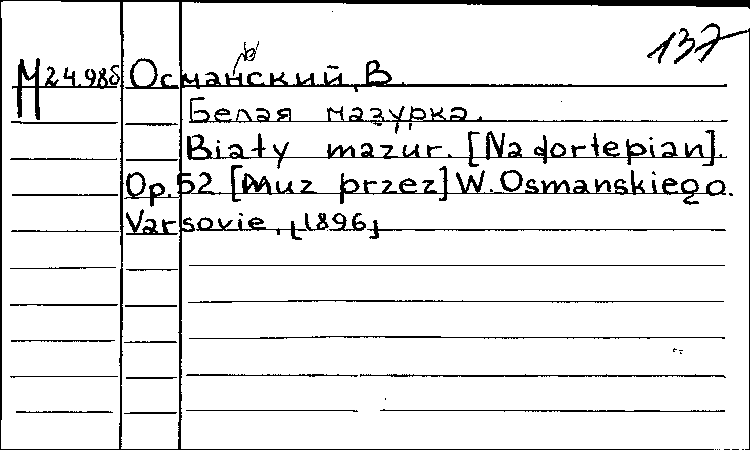 137
М 24.98б Османьский, В.
Белая мазурка.
Biały mazur. [Na fortepian].
Op. 52. [Muz przez] W. Osmanskiego.
Varsovie, [1896]